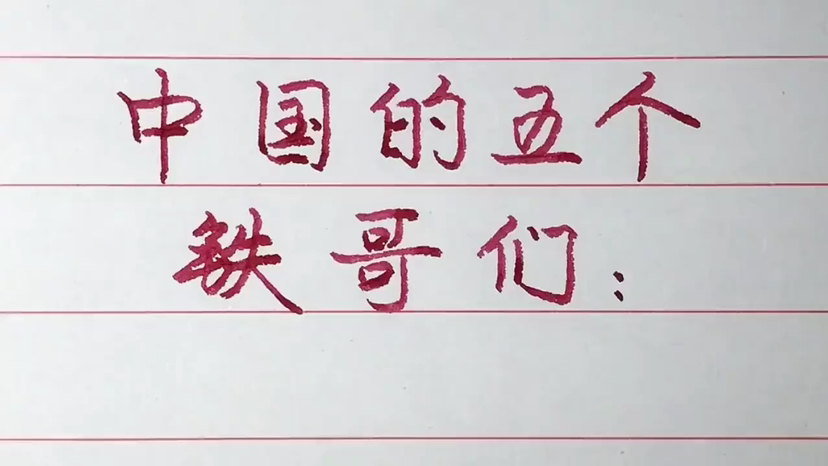 中国的五个
铁哥们：